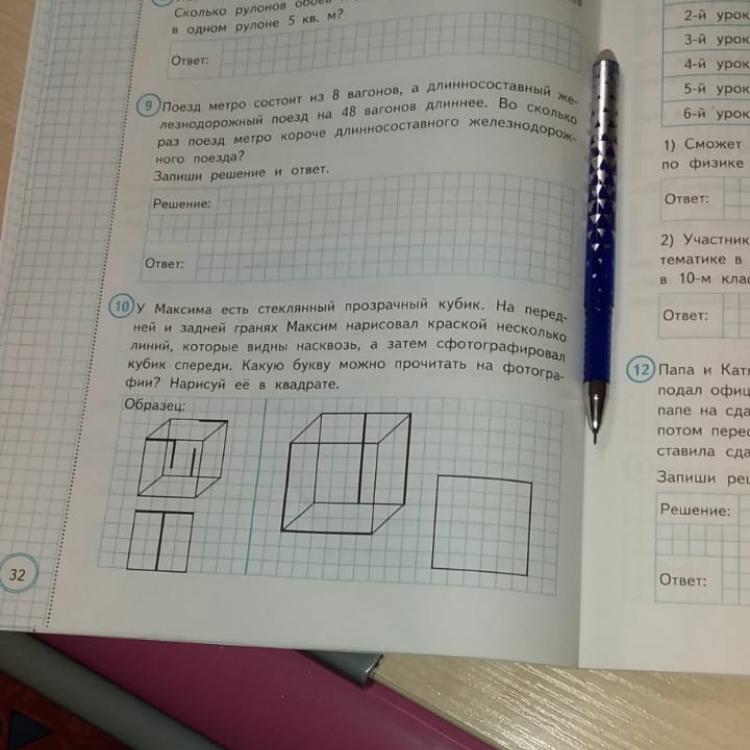 Сколько рулонов обоев
в одном рулоне 5 кв. м?
Ответ:
9 Поезд метро состоит из 8 вагонов, а длинносоставный же-
лезнодорожный поезд на 48 вагонов длиннее. Во сколько
раз поезд метро короче длинносоставного железнодорож-
ного поезда?
Запиши решение и ответ.
Решение:
Ответ:
10 У Максима есть стеклянный прозрачный кубик. На перед-
ней и задней гранях Максим нарисовал краской несколько
линий, которые видны насквозь, а затем сфотографировал
кубик спереди. Какую букву можно прочитать на фотогра-
фии? Нарисуй её в квадрате.
Образец:
32
2-й урок
3-й урок
4-й урок
5-й урок
6-й урок
1) Сможет
по физике
Ответ:
2) Участник
тематике в
в 10-м клас
Ответ:
12 Папа и Катя
подал офиц
папе на сда
потом перес
ставила сда
Запиши реш
Решение:
Ответ: